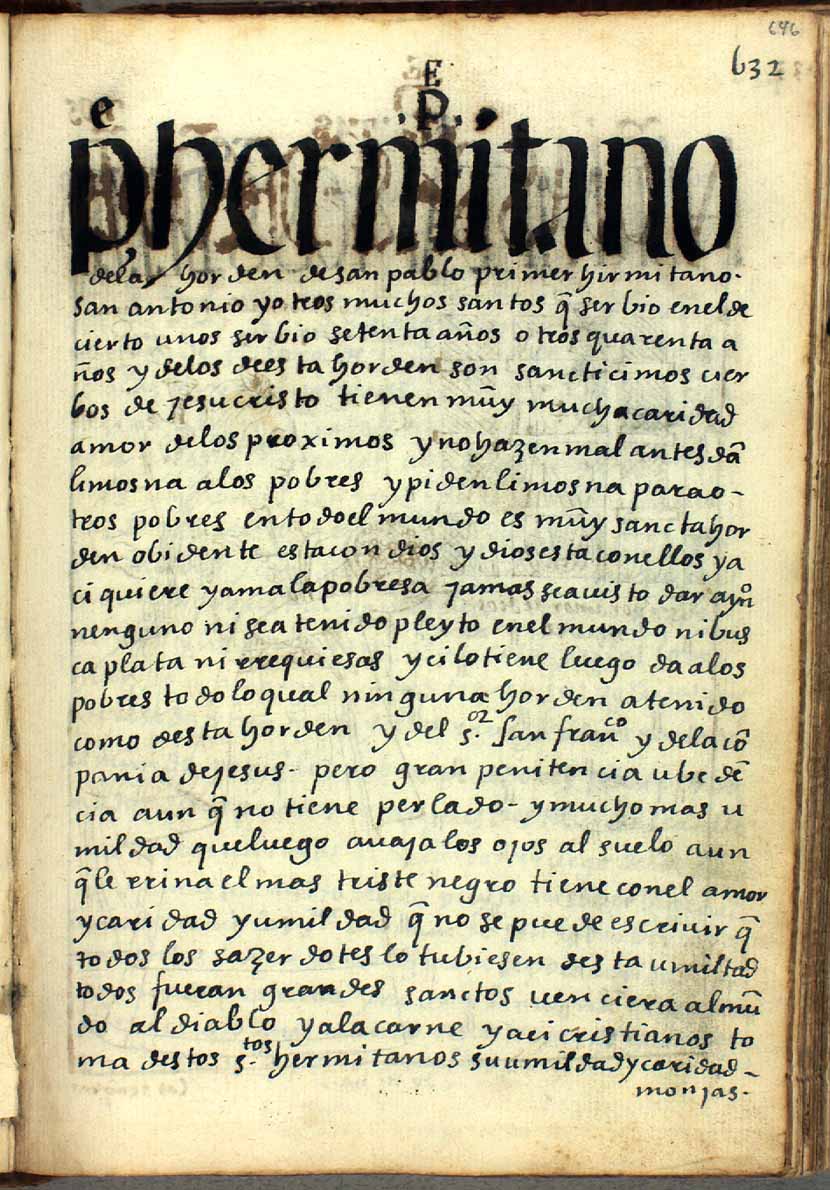 646
632
E
e P.
p hermitano
dela horden de san pablo primer hirmitano.
san antonio yotros muchos santos q̃ serbio enelde
cierto unos serbio setenta años otros quarenta a
ños y delos deesta horden son sancticimos cier
bos de jesucristo tienen mũy mucha caridad
amor delos proximos y no hazen mal antes dã
limosna alos pobres y piden limosna para o-
tros pobres entodoel mundo es mũy sancta hor
den obidente esta con dios y dios esta conellos ya
ci quiere yama la pobresa jamas sea uisto dar
nenguno ni sea tenido pleyto enel mundo ni bus
ca plata ni rrequiesas y cilo tiene luego da alos
pobres todo lo qual ninguna horden a tenido
como desta horden y del s.or san franco y dela cõ
pania dejesus- pero gran penitencia ubedẽ
cia aun q̃ no tiene perlado- y mucho mas u
mildad que luego auaja los ojos al suelo aun
q̃le rrina el mas triste negro tiene con el amor
y caridad y umildad q̃ no se puede escriuir q̃
todos los sazerdotes lo tubiesen desta umiltad
todos fueran grandes sanctos uenciera al mũ
do al diablo y ala carne y aci cristianos to
ma destos s.tos hermitanos su umildad y caridad-
monjas.